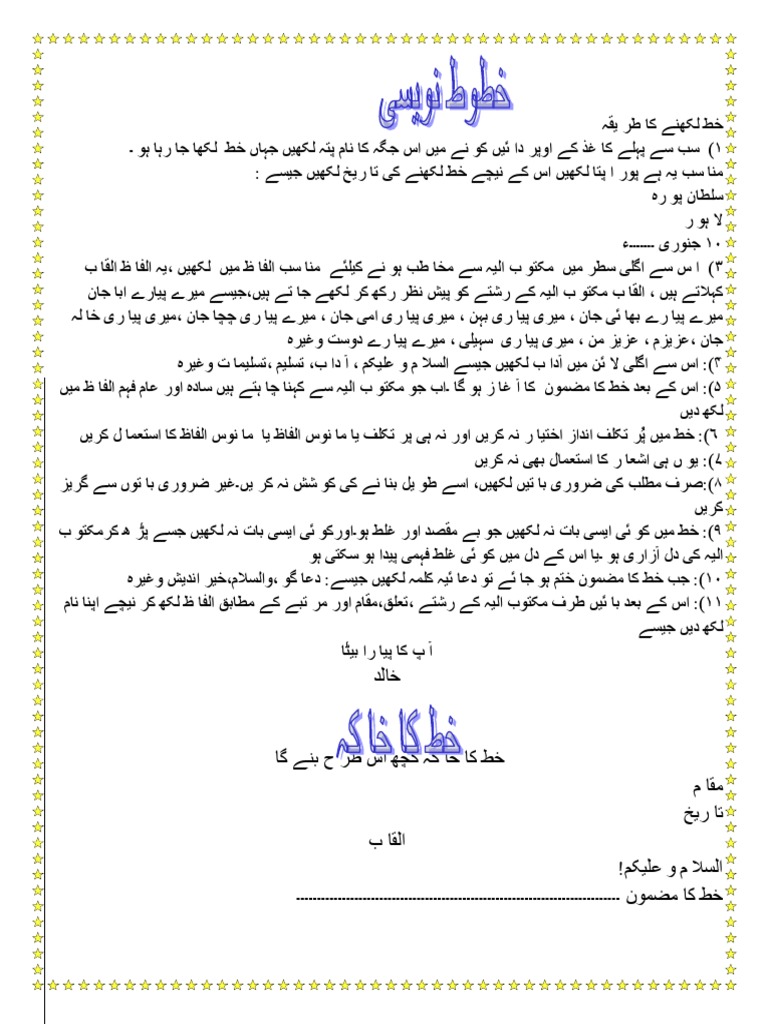 خطوط نویسی
خط لکھنے کا طر یقہ
۱) سب سے پہلے کا غذ کے اوپر دا ئیں کو نے میں اس جگہ کا نام پتہ لکھیں جہاں خط لکھا جا رہا ہو ۔
منا سب یہ ہے پور ا پتا لکھیں اس کے نیچے خط لکھنے کی تا ریخ لکھیں جیسے :
سلطان پو رہ
لا ہو ر
۱۰ جنوری -------ء
۳) ا س سے اگلی سطر میں مکتو ب الیہ سے مخا طب ہو نے کیلئے منا سب الفا ظ میں لکھیں ،یہ الفا ظ القا ب
کہلاتے ہیں ، القا ب مکتو ب الیہ کے رشتے کو پیش نظر رکھ کر لکھے جا تے ہیں،جیسے میرے پیارے ابا جان
میرے پیا رے بھا ئی جان ، میری پیا ری بہن ، میری پیا ری امی جان ، میرے پیا ری چچا جان ،میری پیا ری خا لہ
جان ،عزیزم ، عزیز من ، میری پیا ری سہیلی ، میرے پیا رے دوست وغیرہ
۴): اس سے اگلی لا ئن میں آدا ب لکھیں جیسے السلا م و علیکم ، آ دا ب، تسلیم ،تسلیما ت وغیرہ
۵): اس کے بعد خط کا مضمون کا آ غا ز ہو گا ۔اب جو مکتو ب الیہ سے کہنا چا ہتے ہیں سادہ اور عام فہم الفا ظ میں
لکھ دیں
۶): خط میں پُر تکلف انداز اختیا ر نہ کریں اور نہ ہی پر تکلف یا ما نوس الفاظ یا ما نوس الفاظ کا استعما ل کریں
۷): یو ں ہی اشعا ر کا استعمال بھی نہ کریں
۸):صرف مطلب کی ضروری با تیں لکھیں، اسے طو یل بنا نے کی کو شش نہ کر یں۔غیر ضروری با توں سے گریز
کریں
۹): خط میں کو ئی ایسی بات نہ لکھیں جو بے مقصد اور غلط ہو۔اورکو ئی ایسی بات نہ لکھیں جسے پڑ ھ کرمکتو ب
الیہ کی دل آزاری ہو ۔یا اس کے دل میں کو ئی غلط فہمی پیدا ہو سکتی ہو
۱۰): جب خط کا مضمون ختم ہو جا ئے تو دعا ئیہ کلمہ لکھیں جیسے: دعا گو ،والسلام،خیر اندیش وغیرہ
۱۱): اس کے بعد با ئیں طرف مکتوب الیہ کے رشتے ،تعلق،مقام اور مر تبے کے مطابق الفا ظ لکھ کر نیچے اپنا نام
لکھ دیں جیسے
آ پ کا پیا را بیٹا
خالد
خط کا خا کہ
خط کا خا کہ کچھ اس طر ح بنے گا
مقا م
تا ریخ
القا ب
السلا م و علیکم!
خط کا مضمون ------------------------------------------------------------------------------